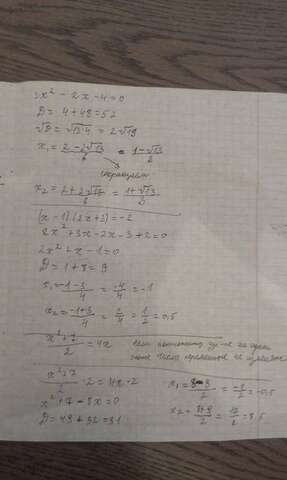 3x² - 2x - 4 = 0
D = 4 + 48 = 52
√D = √13·4 = 2√13
x₁ = (2 - 2√13)/6 = (1 - √13)/3
сокращаем
x₂ = (2 + 2√13)/6 = (1 + √13)/3
(x - 1)(2x + 3) = -2
2x² + 3x - 2x - 3 + 2 = 0
2x² + x - 1 = 0
D = 1 + 8 = 9
x₁ = (-1 - 3)/4 = -4/4 = -1
x₂ = (-1 + 3)/4 = 2/4 = 1/2 = 0,5
(x² + 7)/2 = 4x
(x² + 7)/2 · 2 = 4x · 2
x² + 7 - 8x = 0
D = 49 + 32 = 81
x₁ = (8 - 9)/2 = -1/2 = -0,5
x₂ = (8 + 9)/2 = 17/2 = 8,5